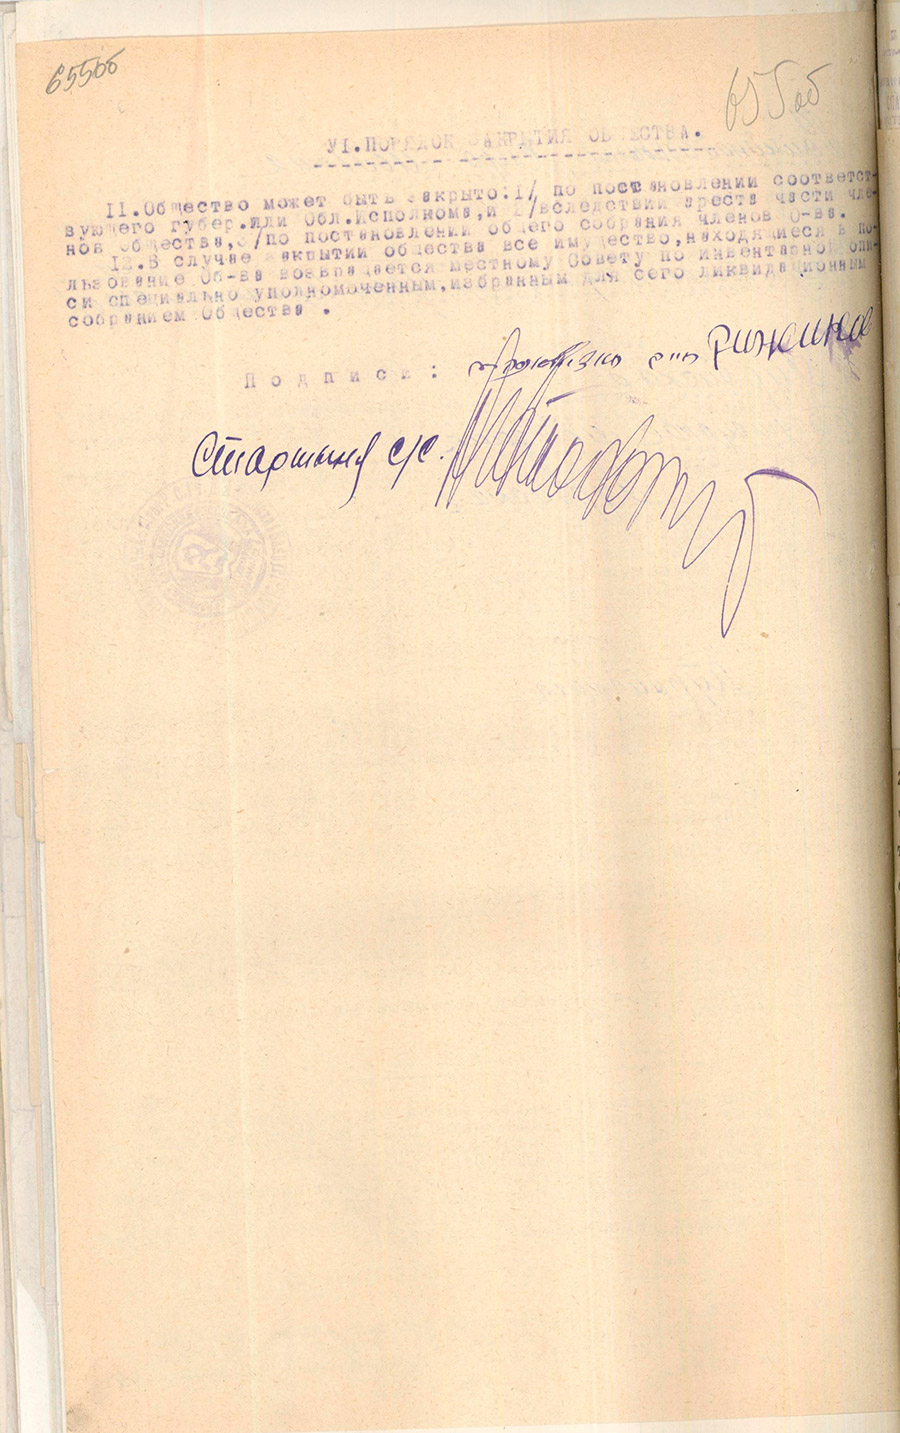 655об
655об
УI.ПОРЯДОК ЗАКРЫТИЯ ОБЩЕСТВА.
II.Общество может быть закрыто:I/ по постановлении соответст-
вующего губер.или Обл.Исполкома,и 2/вследствии ареста части чле-
нов общества,3/по постановлении общего собрания членов О-ва.
I2.В случае закрытии общества все имущество,находящиеся в по-
льзование Об-ва возвращается местному Совету по инвентарной опи-
си специально уполномоченным,избранным для сего ликвидационным
собранием Общества .
Подписи:
Старшина с/с.